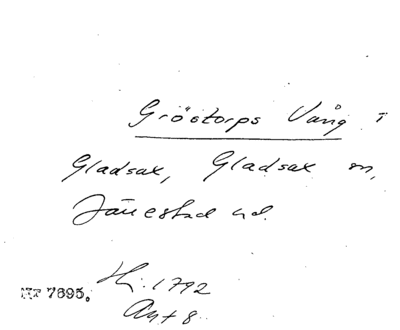 Gröstorps Vång i
Gladsax, Gladsax sn,
Järrestad hd.
Hi. 1792
NF 7695.
Akt 8